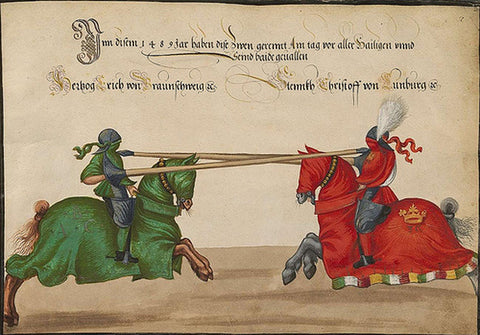 Inn disem 1489 Jar haben dise Zwen gerennt Am tag vor aller Heiligen unnd
Seind baide geuallen
Hertzog Erich von Braunschweig &
Christoff von Limburg &